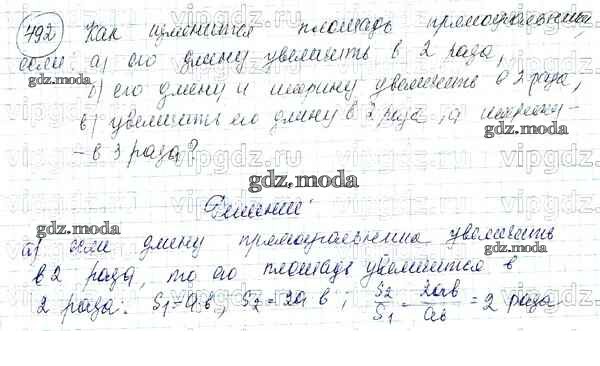 492 Как изменится площадь прямоугольника,
если: а) его длину увеличить в 2 раза,
gdz.moda
б) его длину и ширину увеличить в 2 раза,
в) увеличить его длину в 2 раза, а ширину -
- в 3 раза?
vipgdz.ru
gdz.moda
Решение:
gdz.moda
а) если длину прямоугольника увеличить
в 2 раза, то его площадь увеличится в
2 раза: S₁ = a·b, S₂ = 2a b; S₂/S₁ = 2ab/ab = 2 раза.
gdz.moda